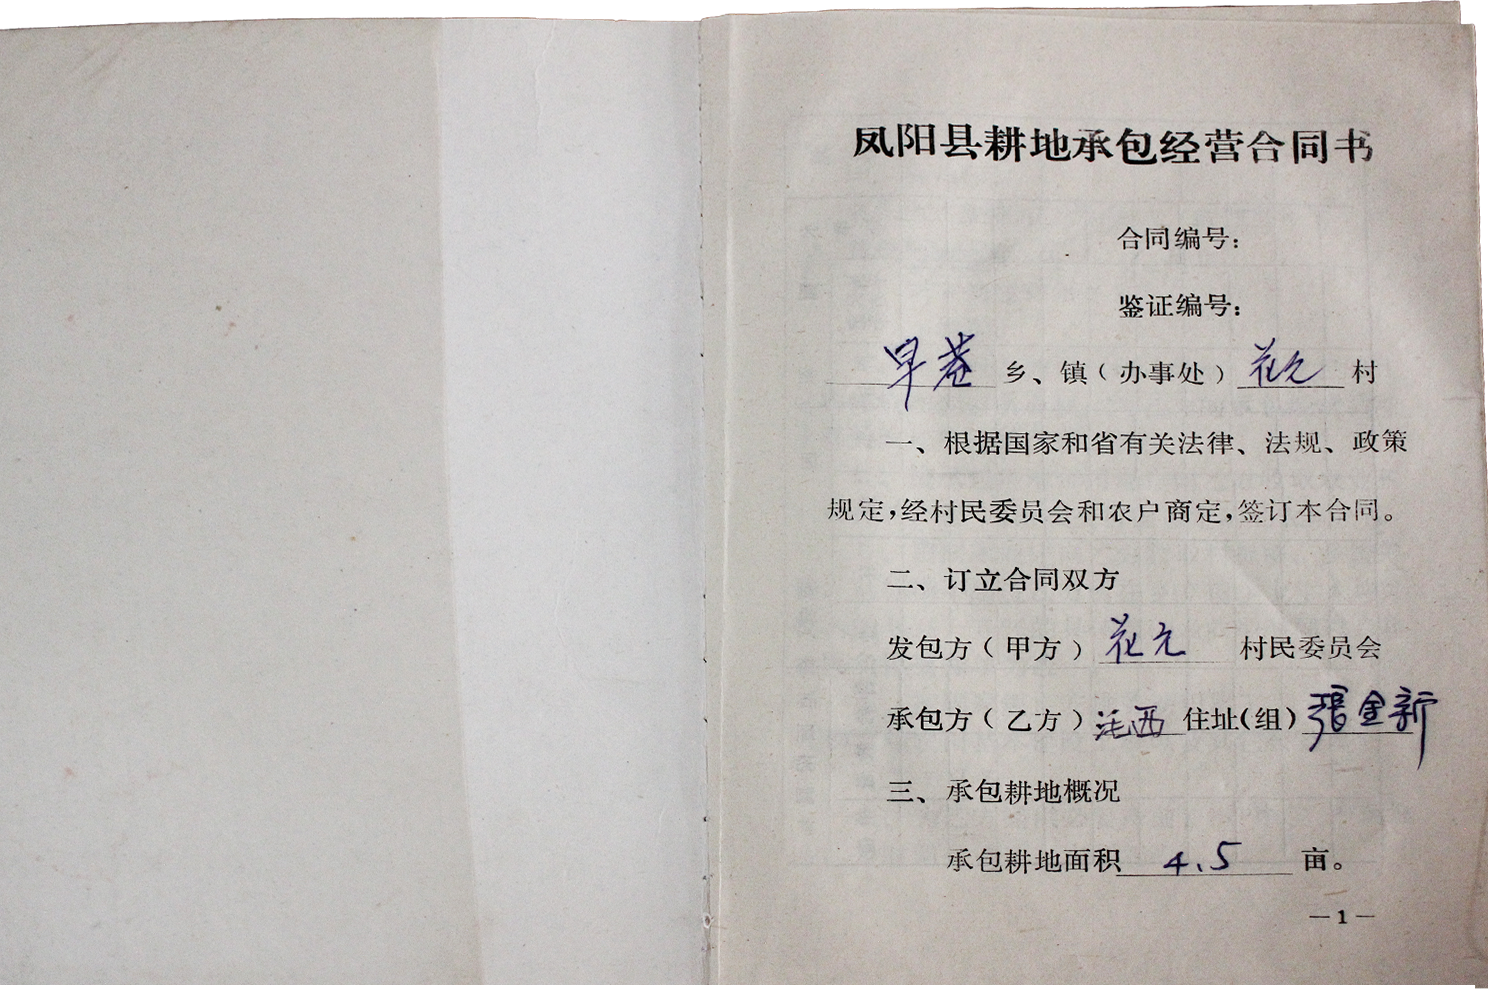 凤阳县耕地承包经营合同书
合同编号：
鉴证编号：
早庵乡、镇（办事处）花元村
一、根据国家和省有关法律、法规、政策
规定，经村民委员会和农户商定，签订本合同。
二、订立合同双方
发包方（甲方）花元村民委员会
承包方（乙方）西住址（组）張金新
三、承包耕地概况
承包耕地面积4.5亩。
—1—